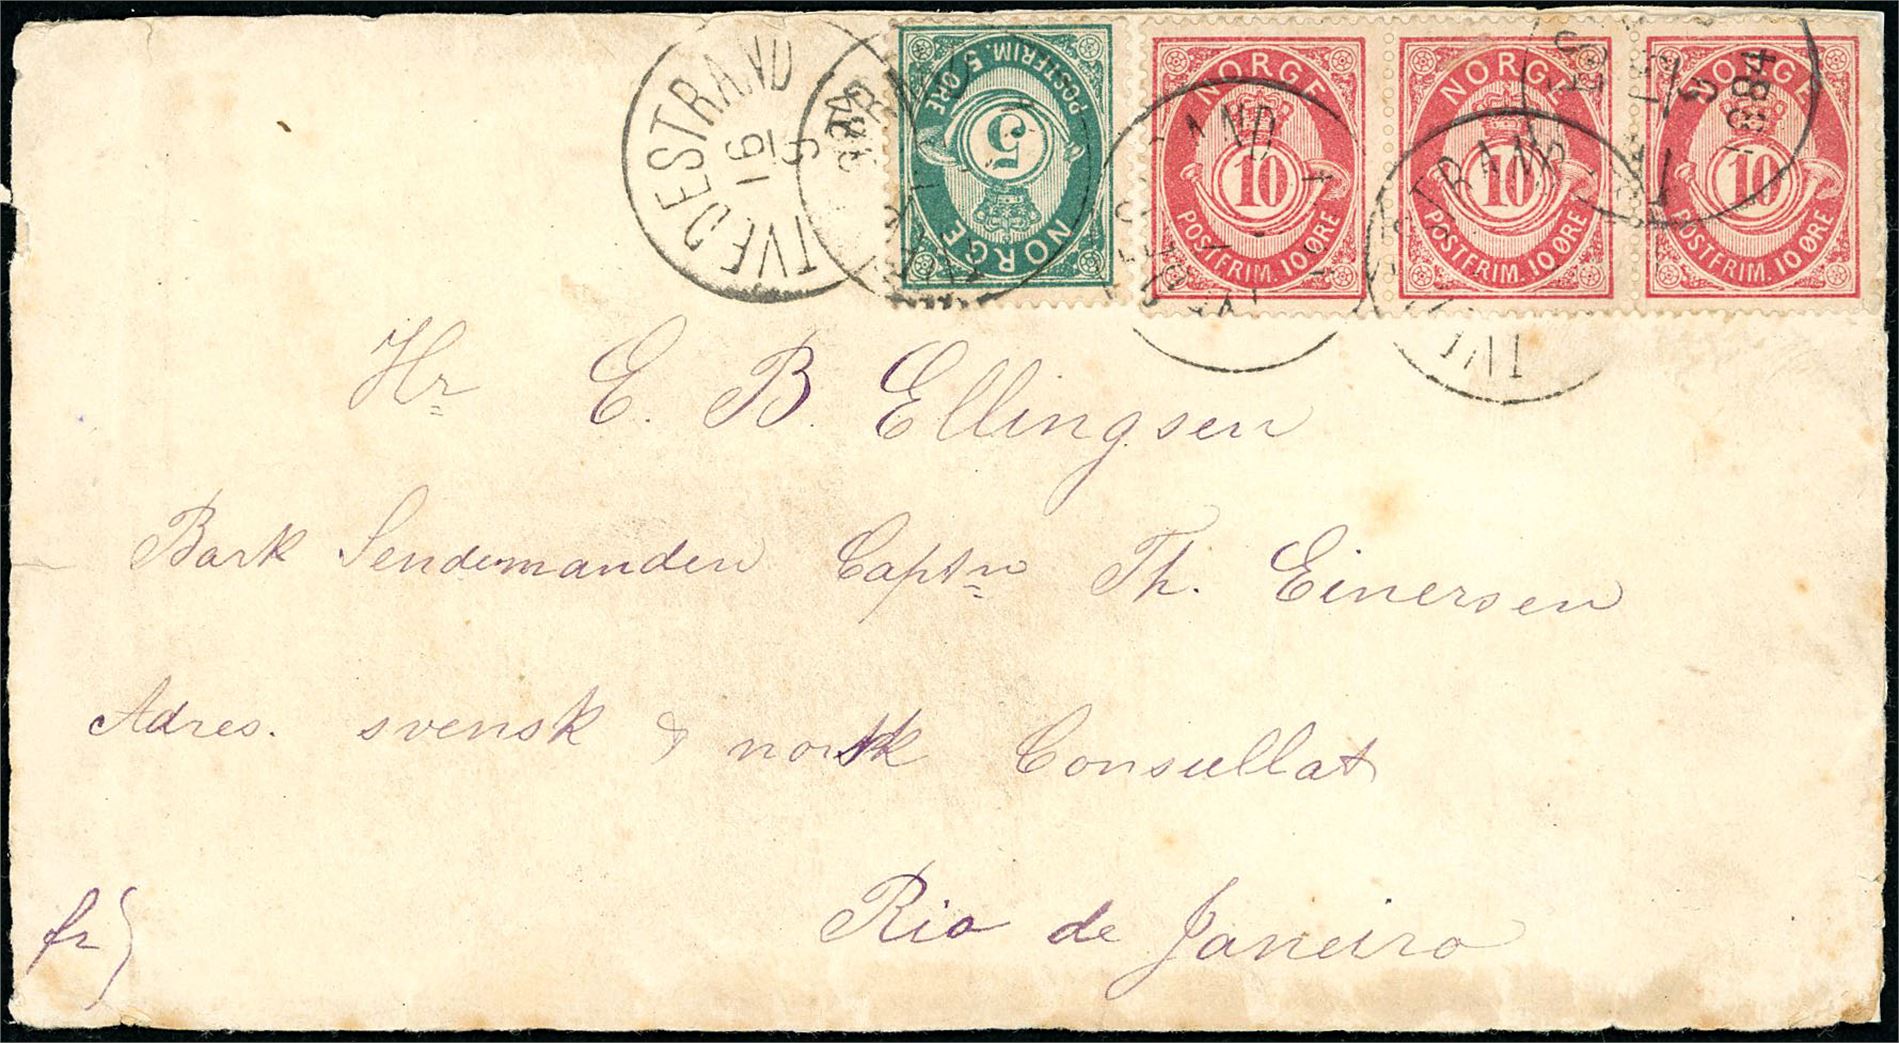 TVEDESTRAND
16
9
1884
NORGE
5
POSTFRIM. 5 ØRE
NORGE
10
POSTFRIM. 10 ØRE
NORGE
10
POSTFRIM. 10 ØRE
NORGE
10
POSTFRIM. 10 ØRE
1884
Hr E. B. Ellingsen
Bark Sendemanden Captn Th. Einersen
Adres. svensk & norsk Consullat
Rio de Janeiro
fr)